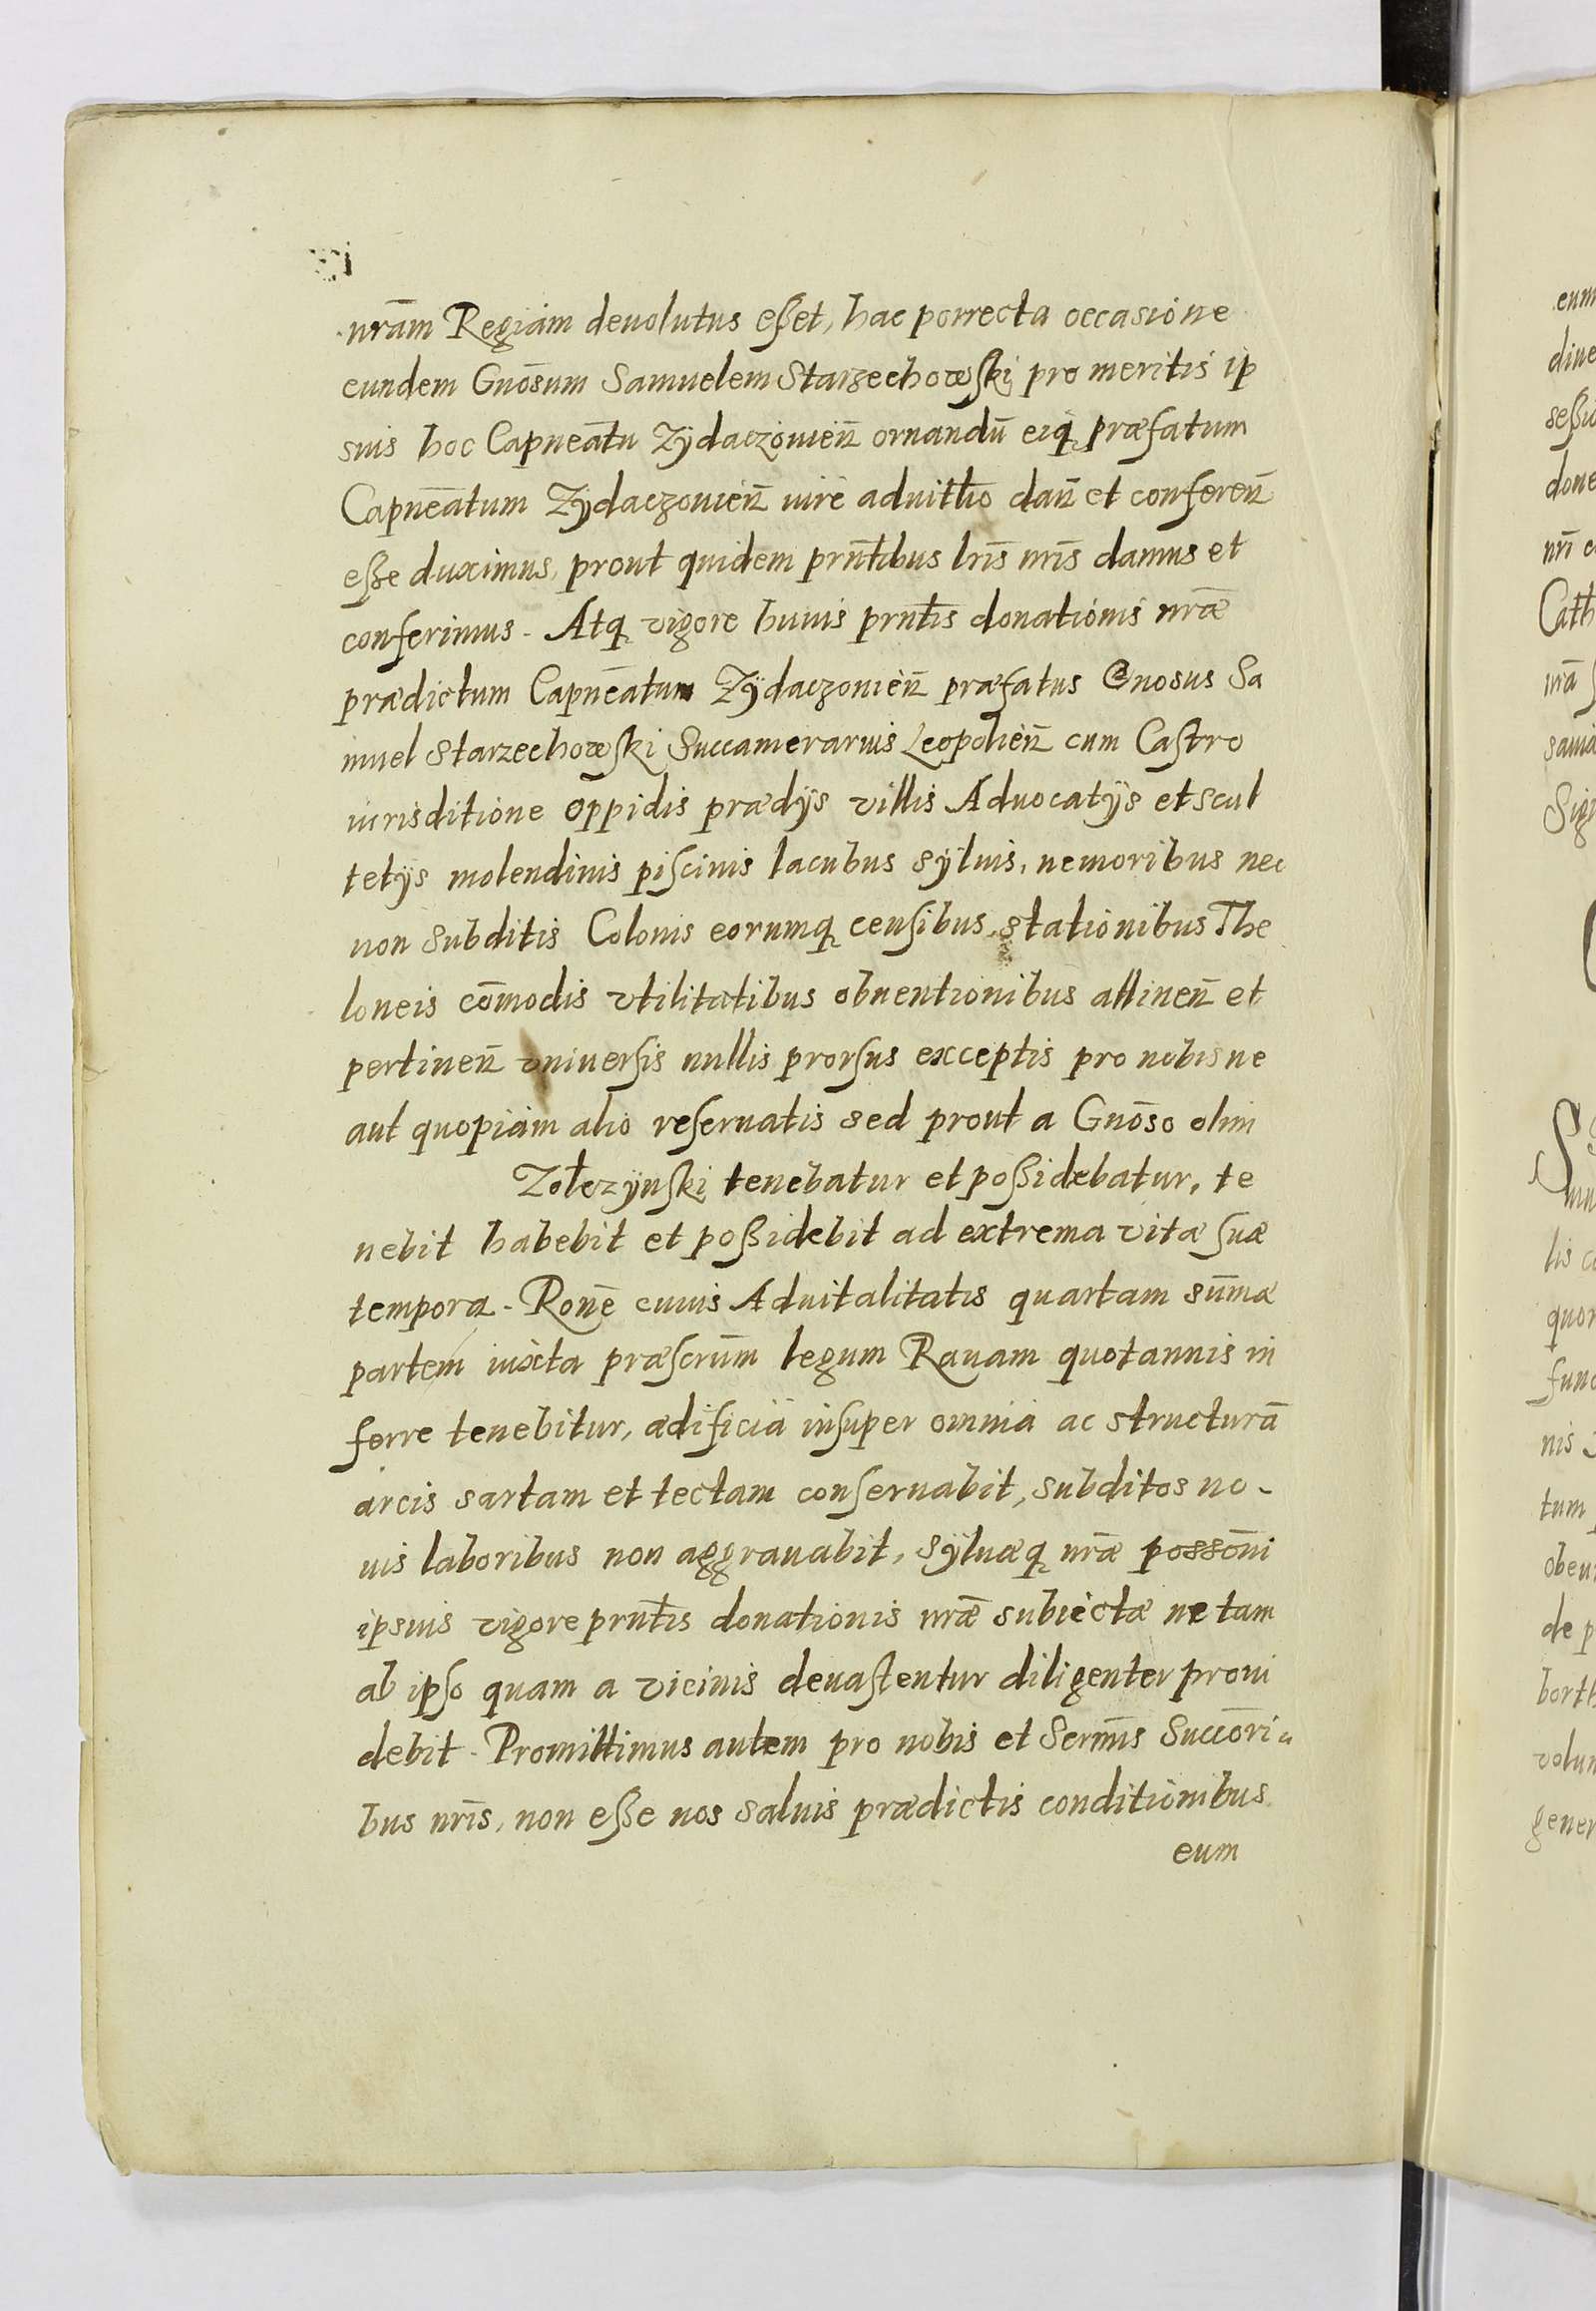 nrām Regiam deuolutus eſſet, hac porrecta occasione
eundem Gnōsum Samuelem Starzechowſki pro meritis ip
suis hoc Capneātu Zÿdaczouien̄ ornandū eiq₃ præfatum
Capneātum Zÿdaczouien̄ iure aduitlīo dan̄ et conferen̄
eſſe duximus, prout quidem prn̄tibus lrīs nrīs damus et
conferimus. Atq₃ vigore huius prn̄tis donationis nrǣ
prædictum Capneātum Zÿdaczouien̄ præfatus Gnosus Sa
muel Starzechowſki Succamerarius Leopolien̄ cum Caſtro
iurisditione oppidis prædÿs villis Aduocatÿs et scul
tetÿs molendinis piſcinis lacubus sÿluis, nemoribus nec
non subditis Colonis eorumq₃ cenſibus, stationibus The
loneis cōmodis vtilitatibus obuentionibus attinen̄ et
pertinen̄ vniuerſis nullis prorſus exceptis pro nobis ne
aut quopiam alio reſeruatis sed prout a Gnōso olim
Zołczÿnſki tenebatur et poſſidebatur, te
nebit habebit et poſſidebit ad extrema vitæ ſuæ
tempora. Ronē cuius Aduitalitatis quartam sūmæ
partem iuxta præſcrūm legum Rauam quotannis in
ferre tenebitur, ædificia inſuper omnia ac structurā
arcis sartam et tectam conſeruabit, subditos no-
uis laboribus non aggrauabit, sÿluæq₃ nrǣ possōni
ipsius vigore prn̄tis donationis nrǣ subiectæ ne tam
ab ipſo quam a vicinis deuaſtentur diligenter proui
debit. Promittimus autem pro nobis et Serm̄is Succōri-
bus nrīs, non eſſe nos saluis prædictis conditionibus
eum